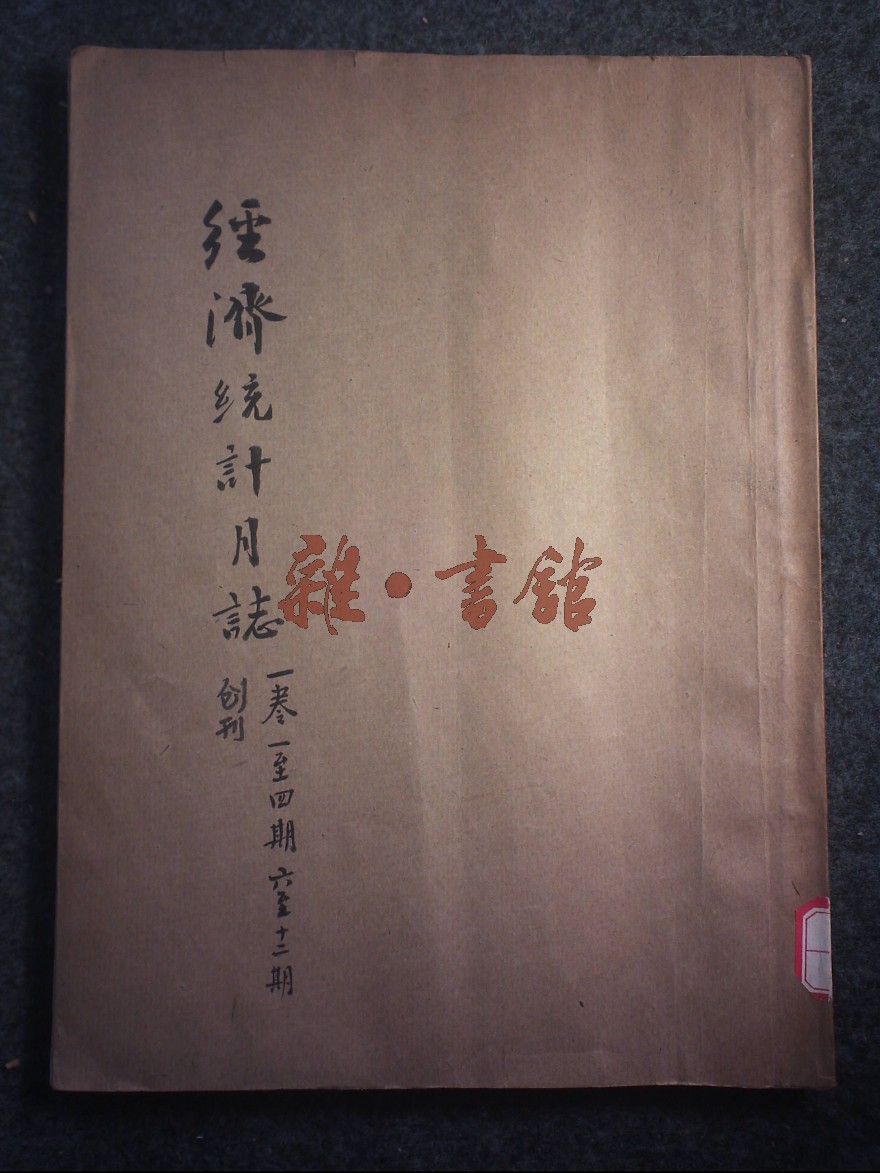 經濟統計月誌
一卷 一至四期 六至十二期
創刊
雜·書館